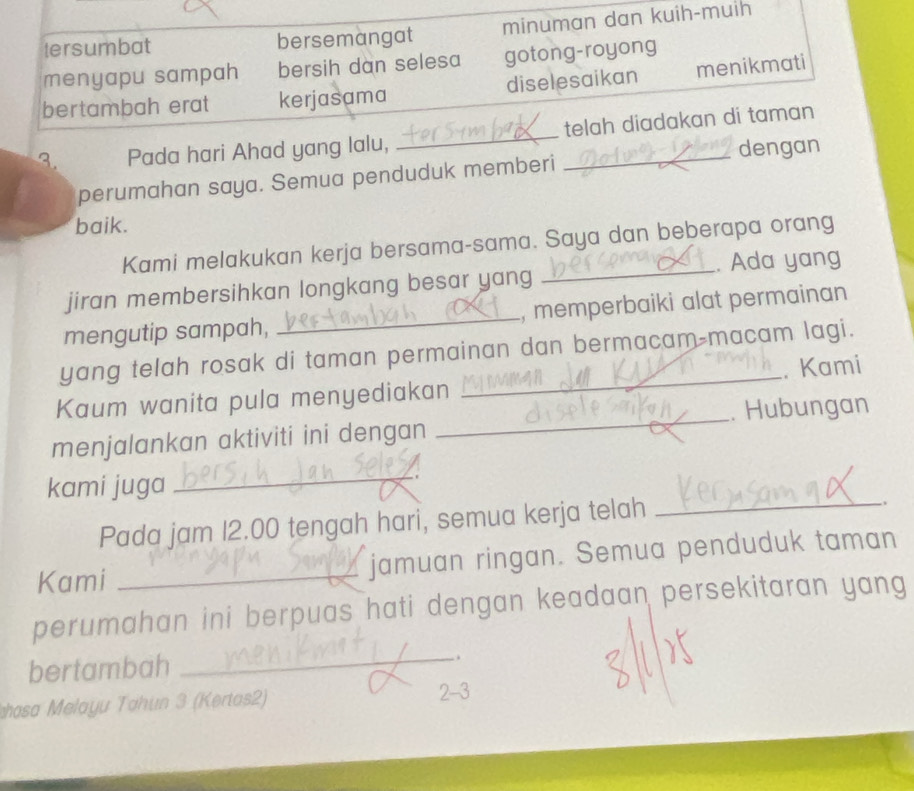 tersumbat bersemangat minuman dan kuih-muih
menyapu sampah bersih dan selesa gotong-royong
bertambah erat kerjasama diselesaikan menikmati
3. Pada hari Ahad yang lalu, tersumbat telah diadakan di taman
perumahan saya. Semua penduduk memberi gotong-royong dengan
baik.
Kami melakukan kerja bersama-sama. Saya dan beberapa orang
jiran membersihkan longkang besar yang bersemangat. Ada yang
mengutip sampah, bertambah erat, memperbaiki alat permainan
yang telah rosak di taman permainan dan bermacam-macam lagi.
Kaum wanita pula menyediakan minuman dan kuih-muih. Kami
menjalankan aktiviti ini dengan diselesaikan. Hubungan
kami juga bersih dan selesa.
Pada jam 12.00 tengah hari, semua kerja telah kerjasama.
Kami menyapu sampah jamuan ringan. Semua penduduk taman
perumahan ini berpuas hati dengan keadaan persekitaran yang
bertambah menikmati.
8/1/25
Melayu Tahun 3 (Kertas2) 2-3